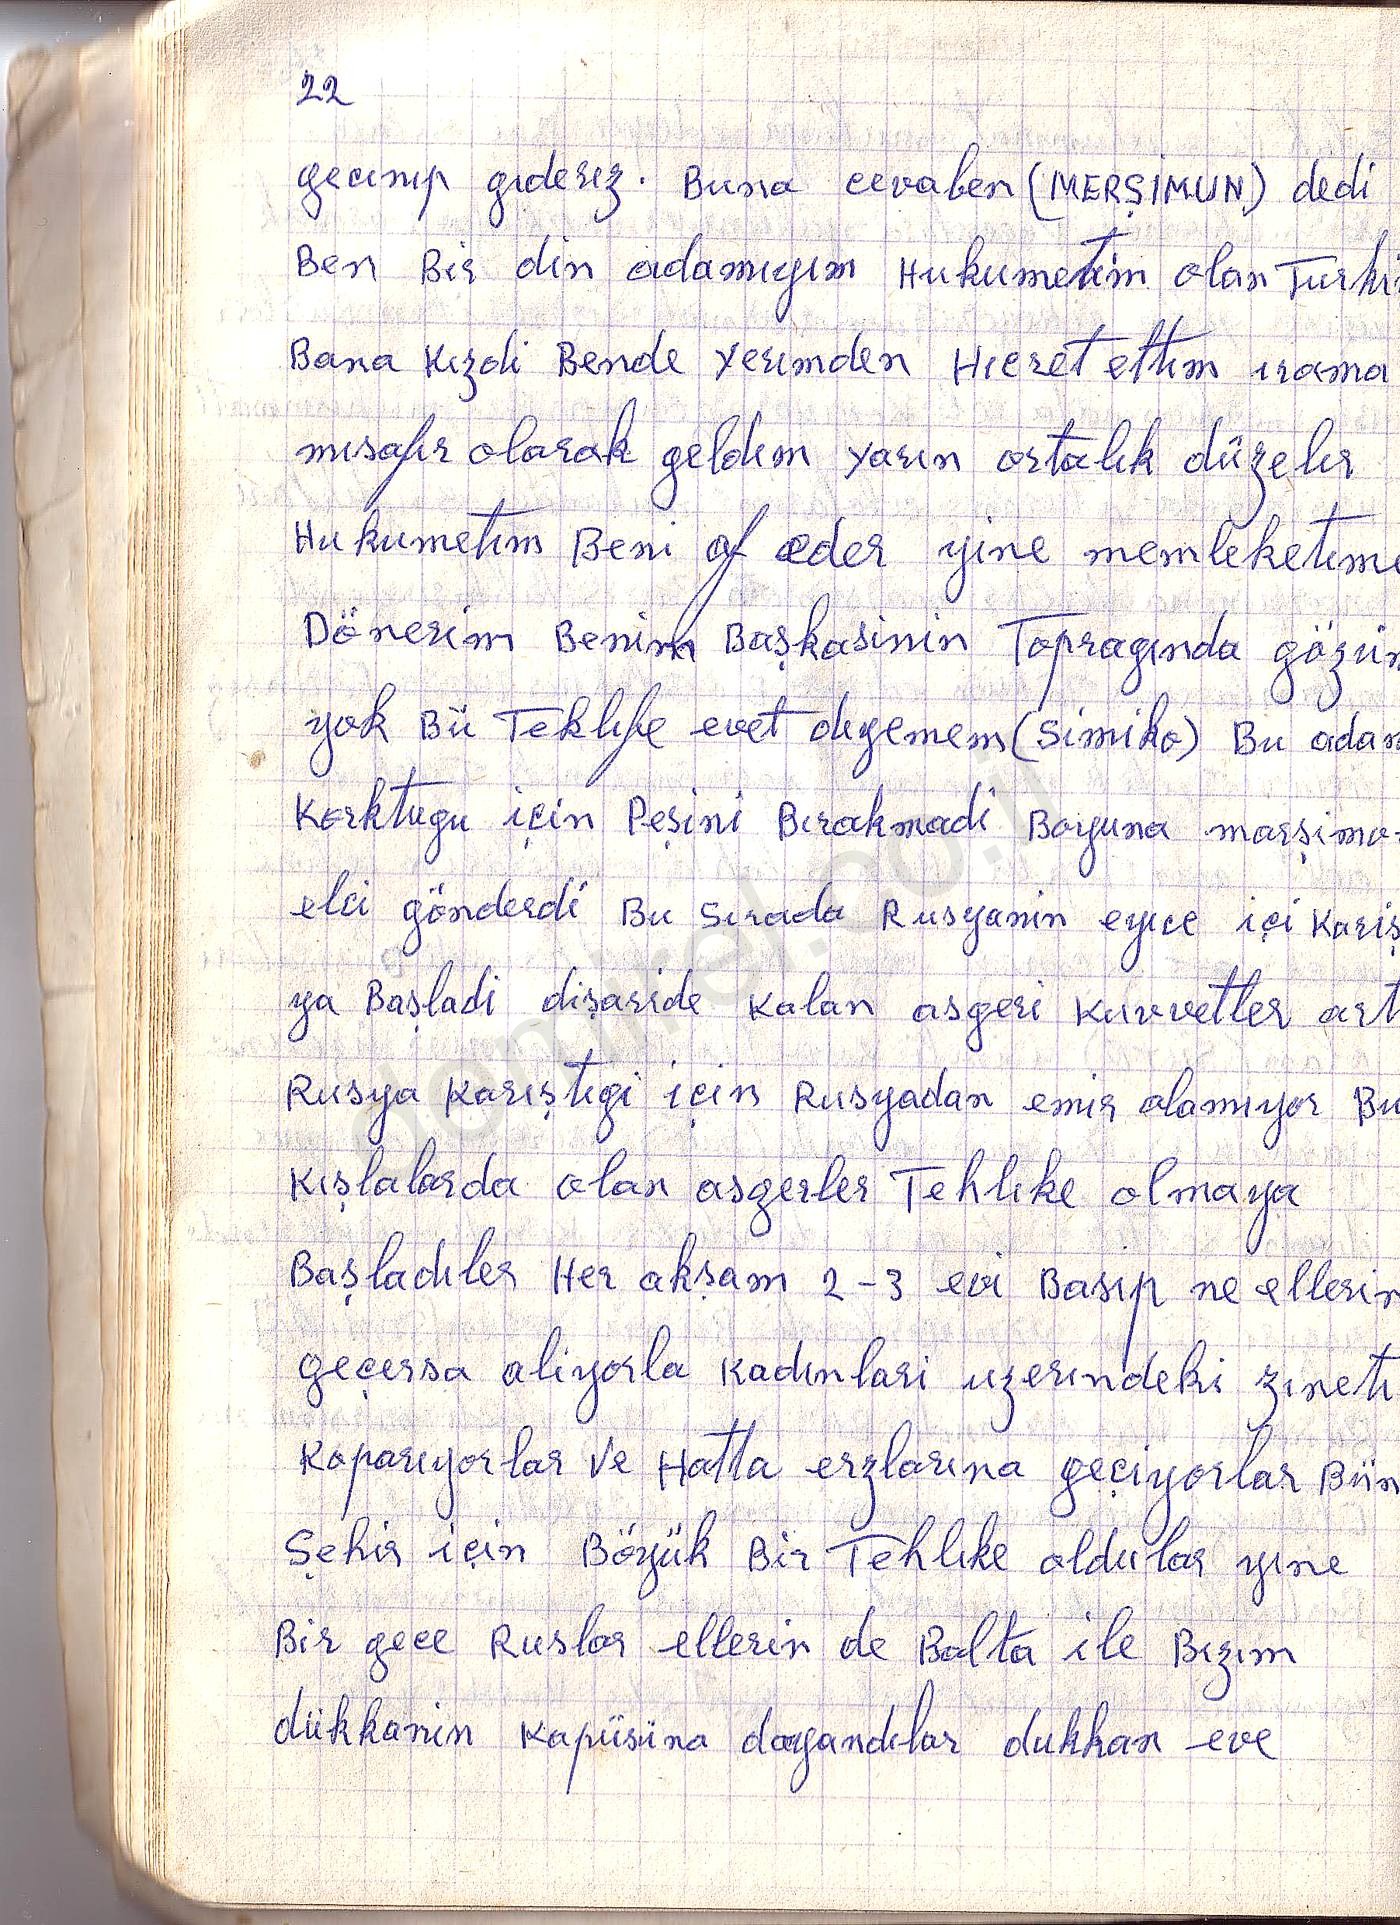 22
gecınıp gıderız. Buna cevaben (MERŞİMUN) dedi
Ben Bir din adamıyım Hukumetim olan Turki
Bana Kızdi Bende Yerımden Hıcret ettım ırama
mısafır olarak geldım Yarın ortalık düzelır
Hukumetım Beni af eder yine memleketıme
Dönerim Benim Başkasinin Topragında gözüm
yok Bü Teklıfe evet dıyemem (Simiko) Bu adam
Korktugu için Peşini Bırakmadi Boyuna marşimo-
elci gönderdi Bu Sırada Rusyanin eyıce içi Kariş
ya Başladi dişaride Kalan asgeri Kuvvetler art
Rusya Karıştıgi için Rusyadan emir alamıyor Bu
Kışlalarda olan asgerler Tehlıke olmaya
Başladıler Her akşam 2-3 evi Basıp ne ellerin
geçersa aliyorla Kadınlari uzerındeki zınetı
Koparıyorlar Ve Hatta erzlarına geçiyorlar Bün
Şehir için Böyük Bir Tehlıke oldular yıne
Bir gece Ruslar ellerin de Balta ile Bızım
dükkanin Kapüsüna dayandılar dukkan eve
demirel.co.il